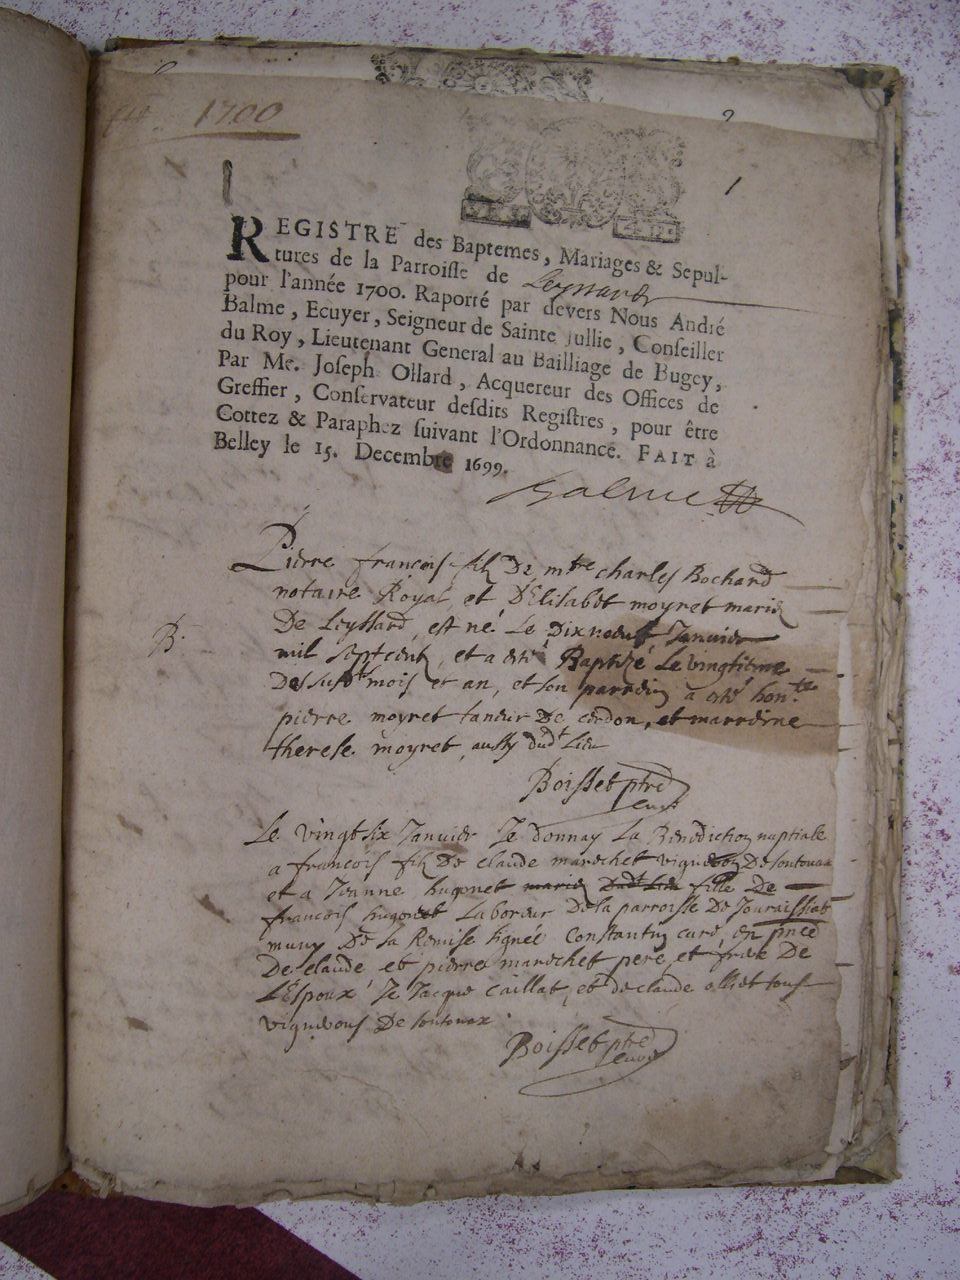 1700
2
1
REGISTRE des Baptemes, Mariages & Sepul-
tures de la Parroisse de Leyssard
pour l'année 1700. Raporté par devers Nous André
Balme, Ecuyer, Seigneur de Sainte Jullie, Conseiller
du Roy, Lieutenant General au Bailliage de Bugey,
Par Me. Joseph Ollard, Acquereur des Offices de
Greffier, Conservateur desdits Registres, pour être
Cottez & Paraphez suivant l'Ordonnance. FAIT à
Belley le 15. Decembre 1699.
Balme
Pierre francois filz De mtre charles Bochard
notaire Royal et D'Elisabet moyret mariez
B. De Leyssard, est né Le Dixneuf Janvier
mil septcent, et a esté Baptizé Le vingtieme
Des susdts mois et an, et son parrein a esté honte
pierre moyret taneur De cerdon, et marreine
therese moyret, aussy dudt Lieu
Boisset ptre
curé
Le vingt six Janvier Je donnay La Bénédiction nuptiale
a francois filz De claude marechet vigneron De
et a Jeanne hugonet mariez Dudt Lieu fille De
francois hugonet Laboreur De la parroisse De
muny De la Remise signée Constantin curé, En pnce
De claude et pierre marechet pere, et frere De
L'Espoux Je Jacque Caillat, et de claude tous
vignerons De
Boisset ptre
curé